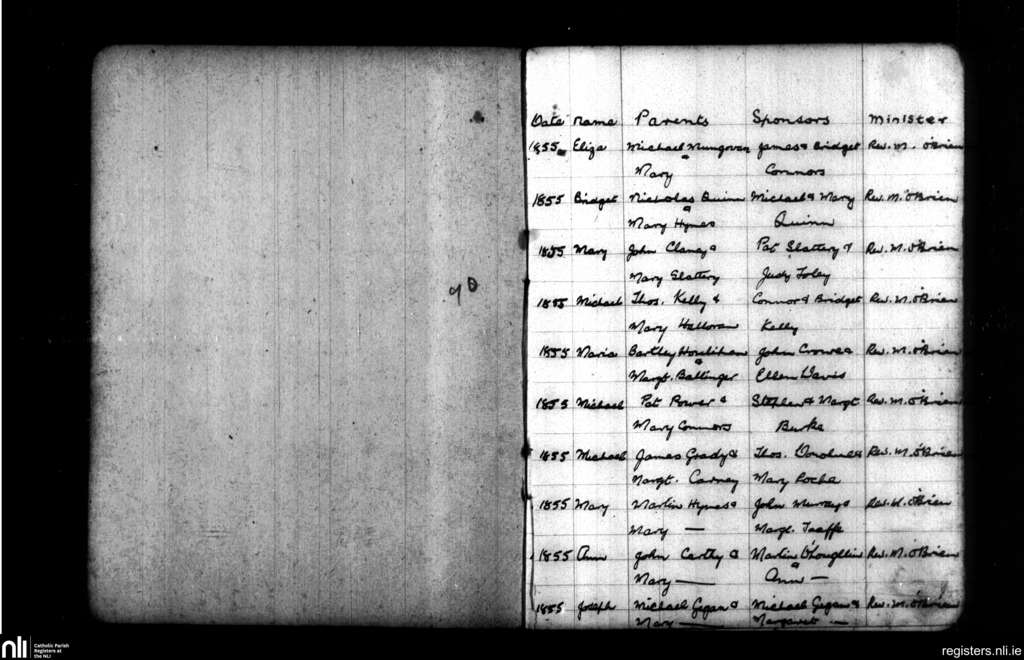 Date Name Parents Sponsors Minister
1855 Eliza Michael Mungovan James & Bridget Rev. M. O'Brien
& Mary Connors
1855 Bridget Nicholas Quinn Michael & Mary Rev. M. O'Brien
& Mary Hynes Quinn
1855 Mary John Clancy & Pat Slattery & Rev. M. O'Brien
Mary Slattery Judy Foley
1855 Michael Thos. Kelly & Connor & Bridget Rev. M. O'Brien
Mary Halloran Kelly
1855 Maria Bartley Houlihan John Crowe & Rev. M. O'Brien
& Margt. Ballinger Ellen Davis
1855 Michael Pat Power & Stephen & Margt Rev. M. O'Brien
Mary Connors Burke
1855 Michael James Grady & Thos. Donohue & Rev. M. O'Brien
Margt. Carney Mary Roche
1855 Mary Martin Hynes & John Murray & Rev. M. O'Brien
Mary — Margt. Taaffe
1855 Ann John Carthy & Martin O'Loughlin Rev. M. O'Brien
Mary — & Ann —
1855 Joseph Michael Gegan & Michael Gegan & Rev. M. O'Brien
Mary — Margaret —
nli Catholic Parish
Registers at
the NLI
registers.nli.ie